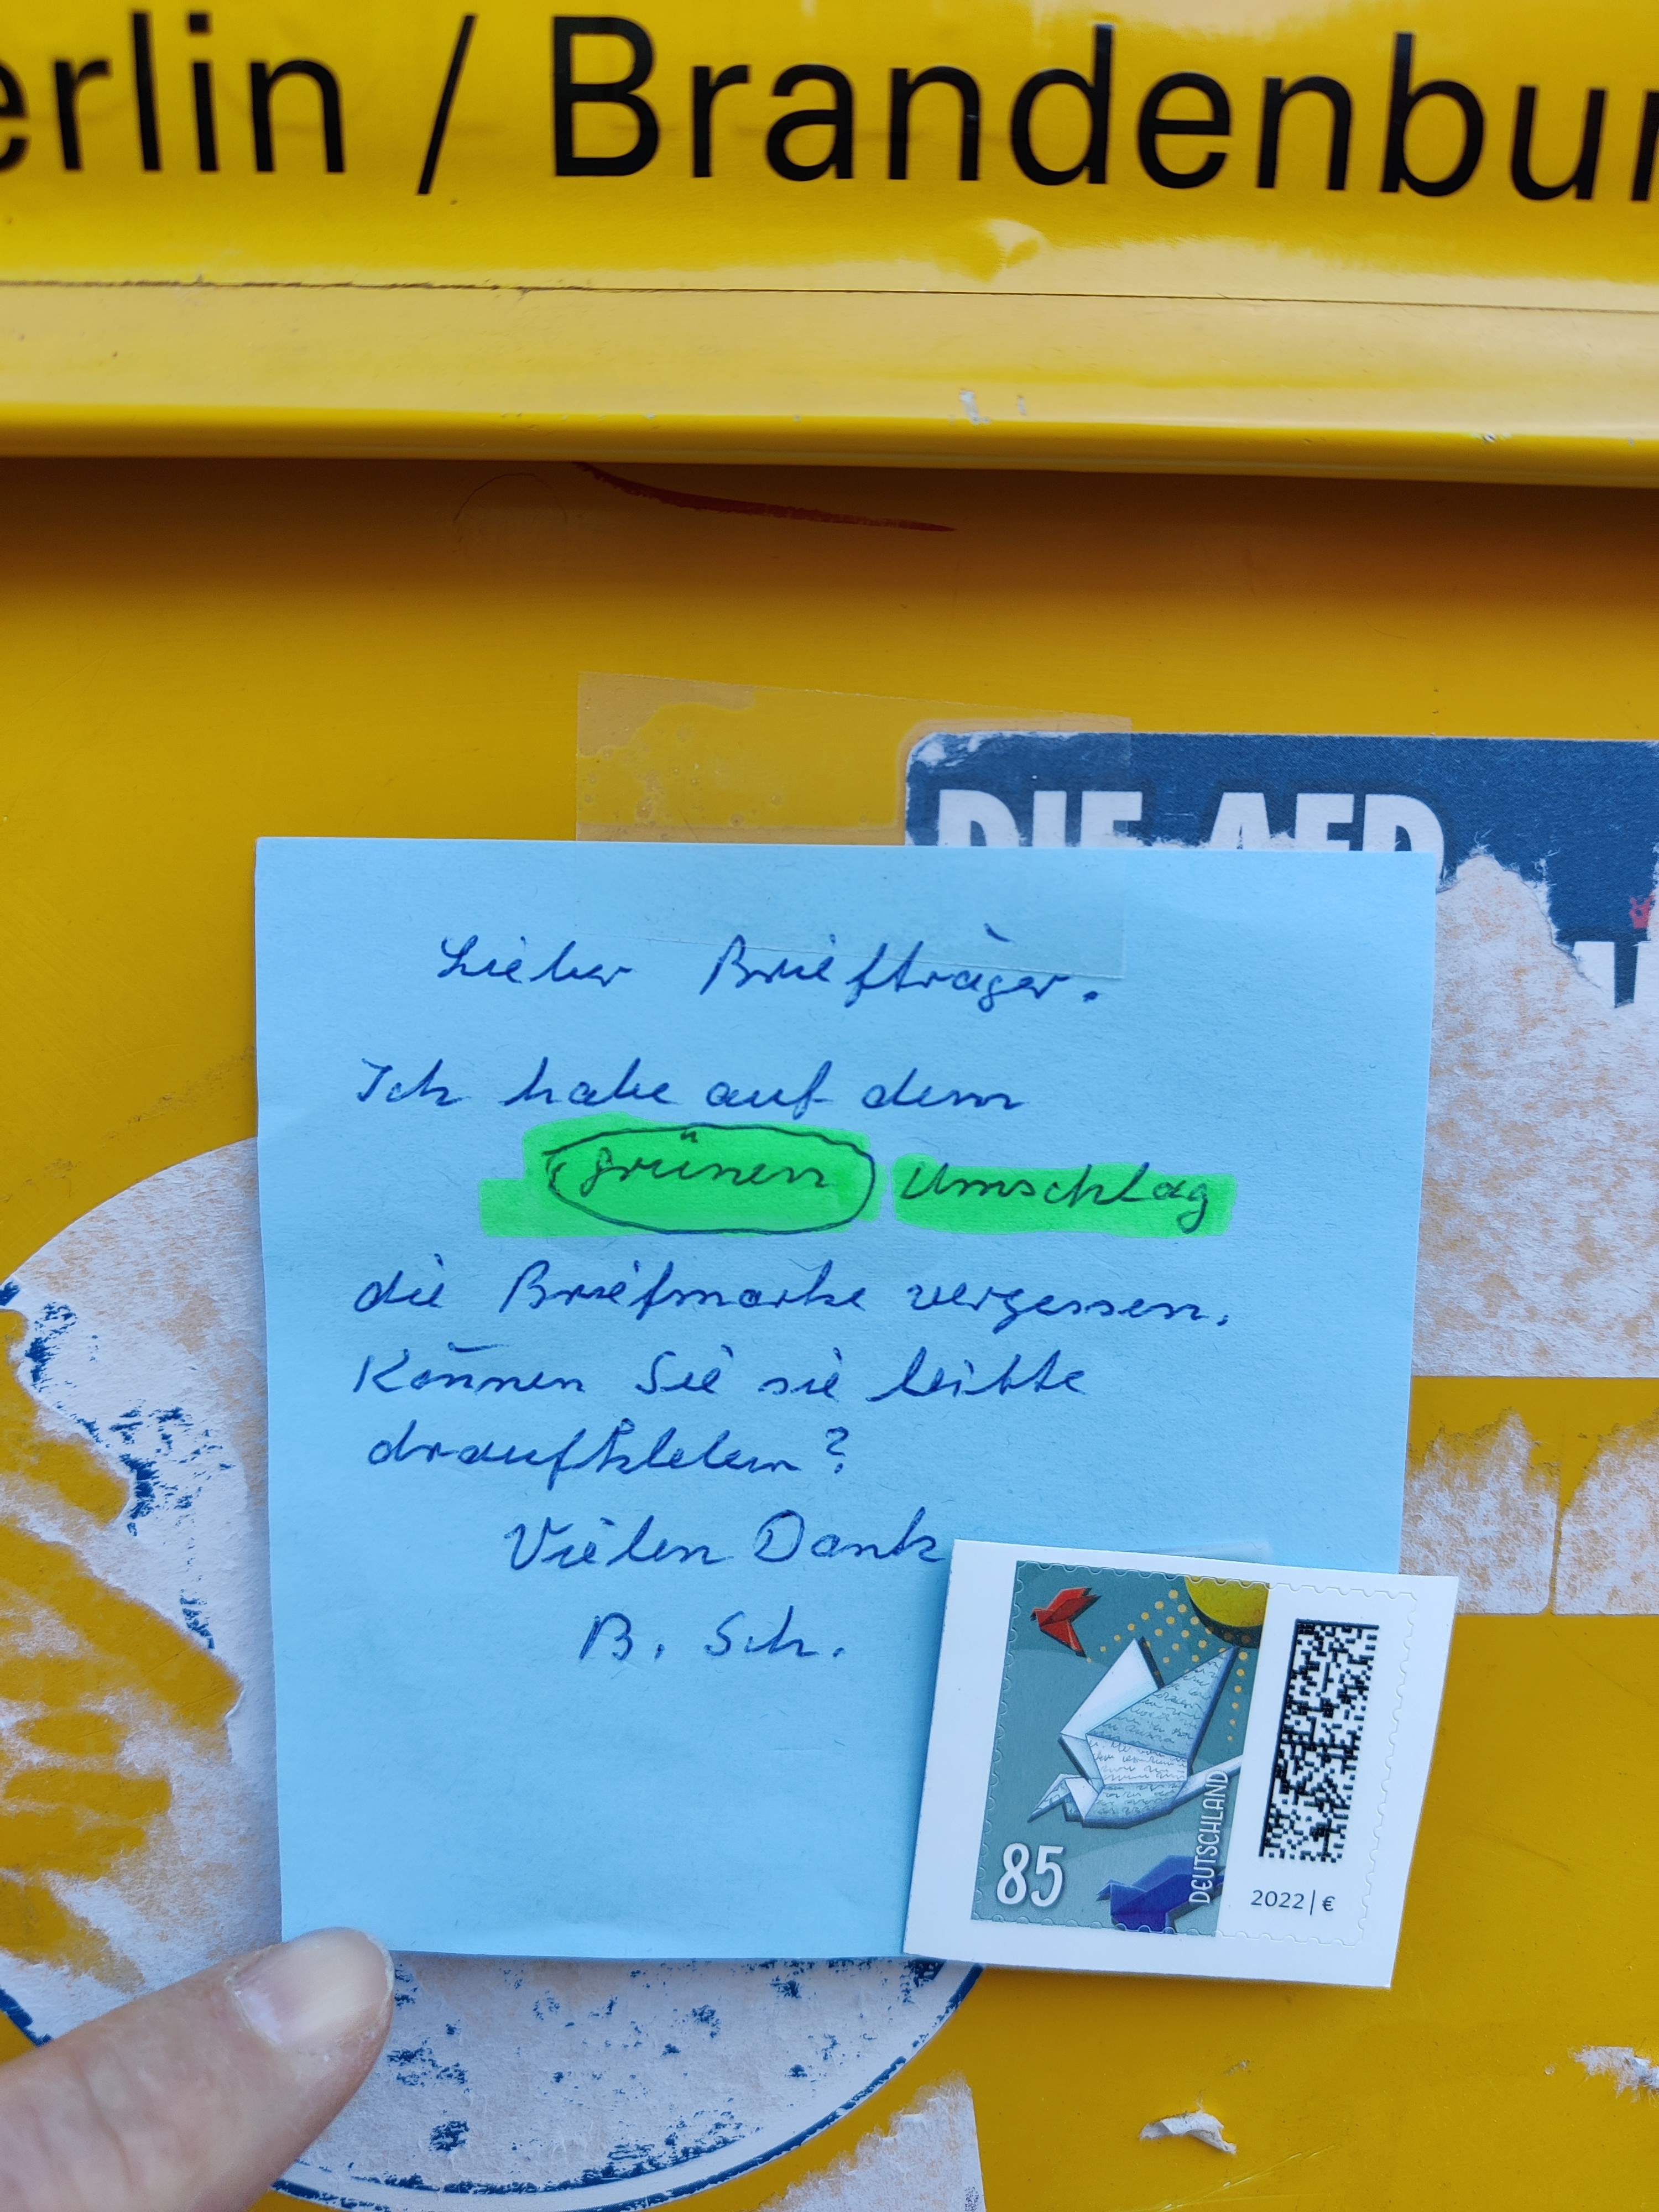 erlin / Brandenbur
DIE AFD
Lieber Briefträger.
Ich habe auf dem
grünen Umschlag
die Briefmarke vergessen.
Können Sie sie bitte
draufkleben?
Vielen Dank
B. Sch.
85
DEUTSCHLAND
2022 | €